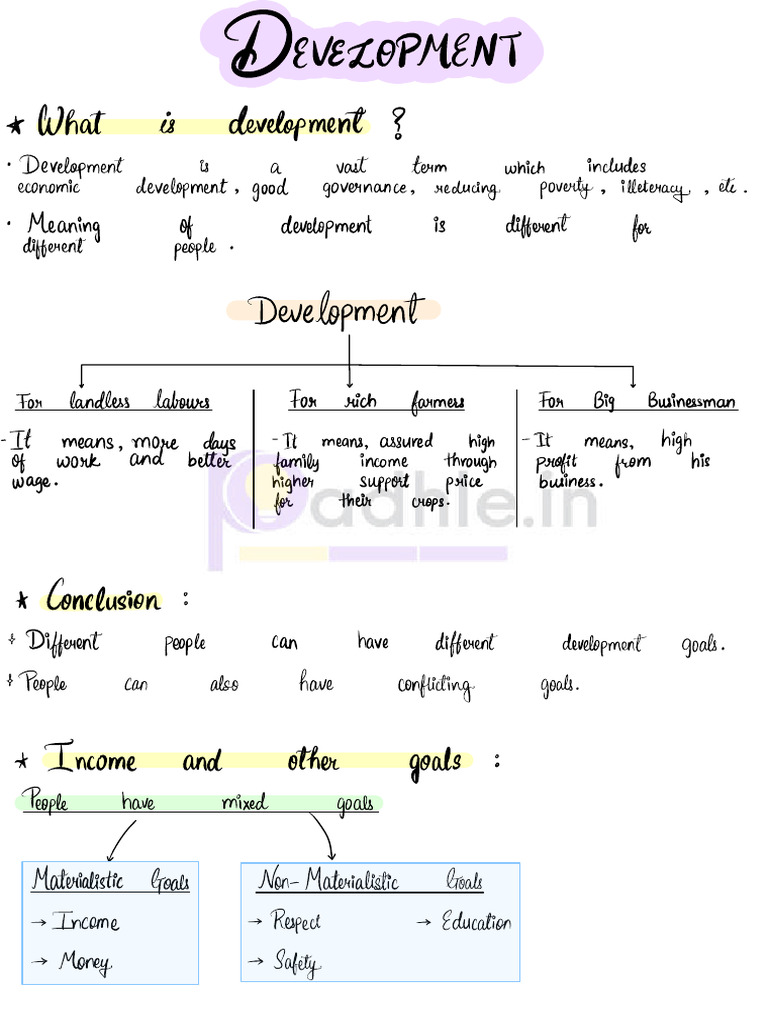 DEVELOPMENT
* What is development ?
• Development is a vast term which includes
economic development, good governance, reducing poverty, illeteracy, etc.
• Meaning of development is different for
different people.
Development
For landless labours
- It means, more days
of work and better
wage.
For rich farmers
- It means, assured high
family income through
higher support price
for their crops.
For Big Businessman
- It means, high
profit from his
business.
padhle.in
* Conclusion :
Different people can have different development goals.
People can also have conflicting goals.
* Income and other goals :
People have mixed goals
Materialistic Goals
→ Income
→ Money
Non-Materialistic Goals
→ Respect → Education
→ Safety